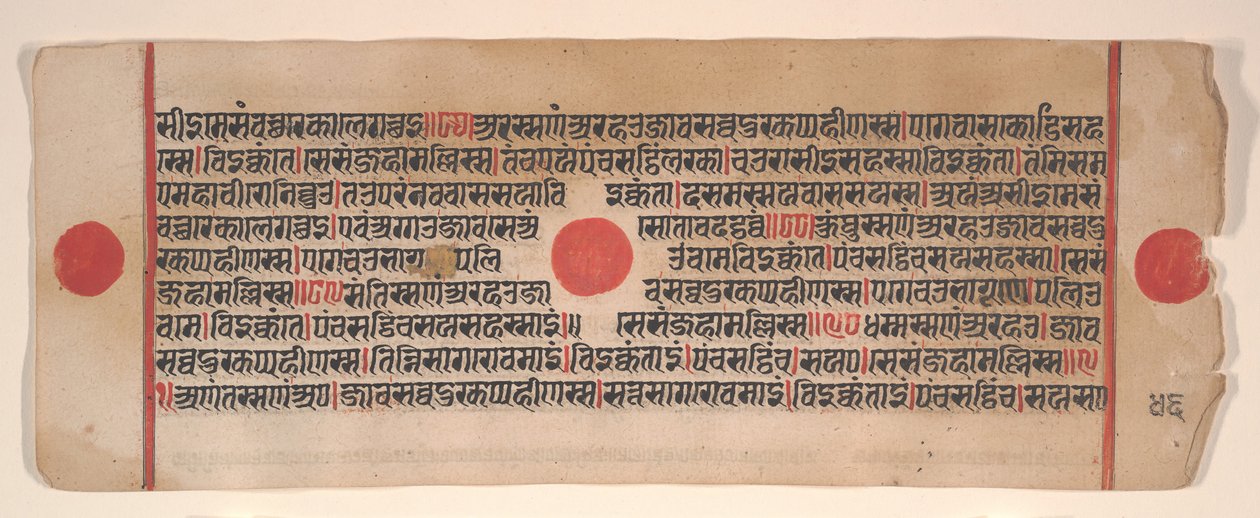 सीइमे संवच्छरे काले गच्छइ॥ अरस्स णं अरहउ जाव सव्वदुरकप्पहीणस्स। एगे वासकोडिसह
स्से। विइक्कंते। सेसं जहा मल्लिस्स। तं च एयं पंचसट्ठिं लरका। चउरासीइसहस्सा विइक्कंता। तंमि सम
ए महावीरो निव्वुउ। तउ परं नव वाससया वि इक्कंता। दसमस्स य वाससयस्स। अयं असीइमे सं
वच्छरे काले गच्छइ। एवं अग्गउ जाव सेयं सो ताव दट्ठव्वं॥ कुंथुस्स णं अरहउ जाव सव्वदु
रकप्पहीणस्स। एगे चउभाग पलि उवमे विइक्कंते। पंचसट्ठिं च सयसहस्सा। सेसं
जहा मल्लिस्स॥ संतिस्स णं अरहउ जा व सव्वदुरकप्पहीणस्स। एगे चउभागूणे। पलिउ
वमे। विइक्कंते। पंचसट्ठिं च सयसहस्साइं॥ सेसं जहा मल्लिस्स॥ धम्मस्स णं अरहउ। जाव
सव्वदुरकप्पहीणस्स। तिन्नि सागरोवमाइं। विइक्कंताइं। पंचसट्ठिं च। सेसं जहा मल्लिस्स॥
अणंतस्स णं जाव सव्वदुरकप्पहीणस्स। सत्त सागरोवमाइं। विइक्कंताइं। पंचसट्ठिं च।